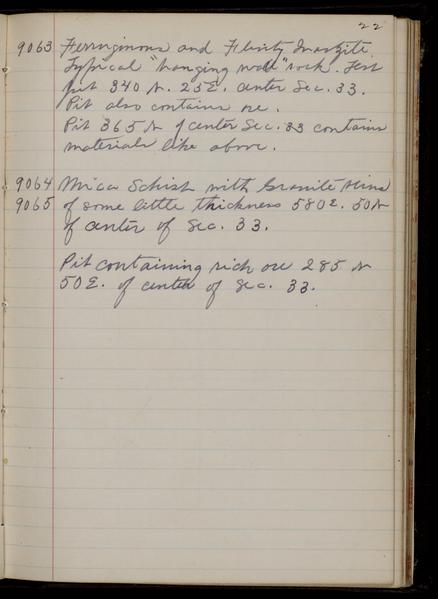 22
9063 Ferruginous and Flinty Quartzite
Typical "hanging wall" rock. Test
pit 340 N. 25E. center Sec. 33.
Pit also contains ore.
Pit 365 N of center Sec. 33 contains
materials like above.
9064 Mica Schist with Granite veins
9065 of some little thickness 580E. 50N
of center of Sec. 33.
Pit containing rich ore 285 N
50E. of center of Sec. 33.